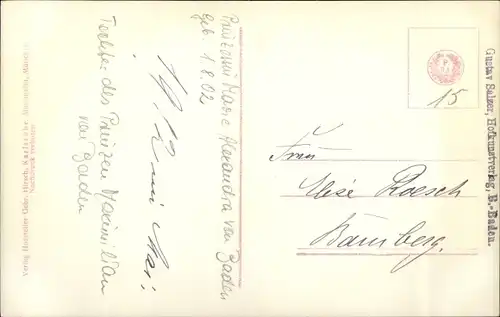 Prinzessin Marie Alexandra von Baden
geb. 1.8.02
Tochter des Prinzen Maximilian
von Baden
Frau
Elise Roesch
Bamberg.
15
Gustav Salzer, Hofkunstverlag, B.-Baden.
Verlag Hofatelier Gebr. Hirsch, Karlsruhe
Nachdruck verboten